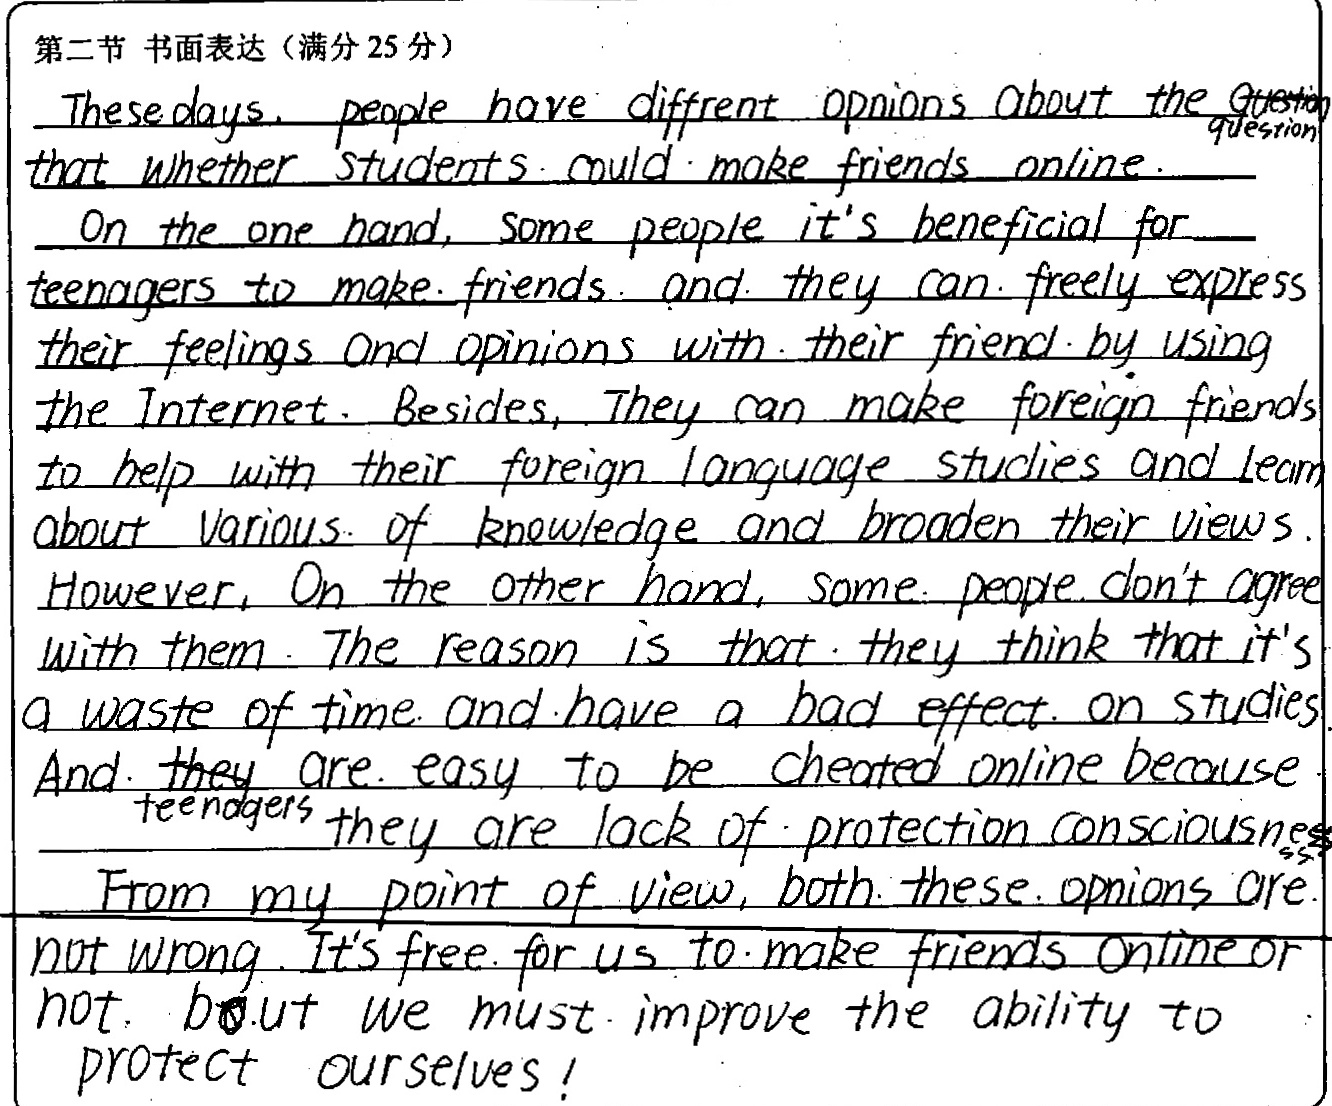 第二节 书面表达（满分 25 分）
These days, people have diffrent opnions about the question
that whether students could make friends online.
On the one hand, some people it's beneficial for
teenagers to make friends. and they can freely express
their feelings and opinions with their friend by using
the Internet. Besides, They can make foreign friends
to help with their foreign language studies and learn
about various of knowledge and broaden their views.
However, On the other hand, some people don't agree
with them. The reason is that they think that it's
a waste of time and have a bad effect on studies.
And teenagers are easy to be cheated online because
they are lack of protection consciousness
From my point of view, both these opnions are
not wrong. It's free for us to make friends online or
not. but we must improve the ability to
protect ourselves!